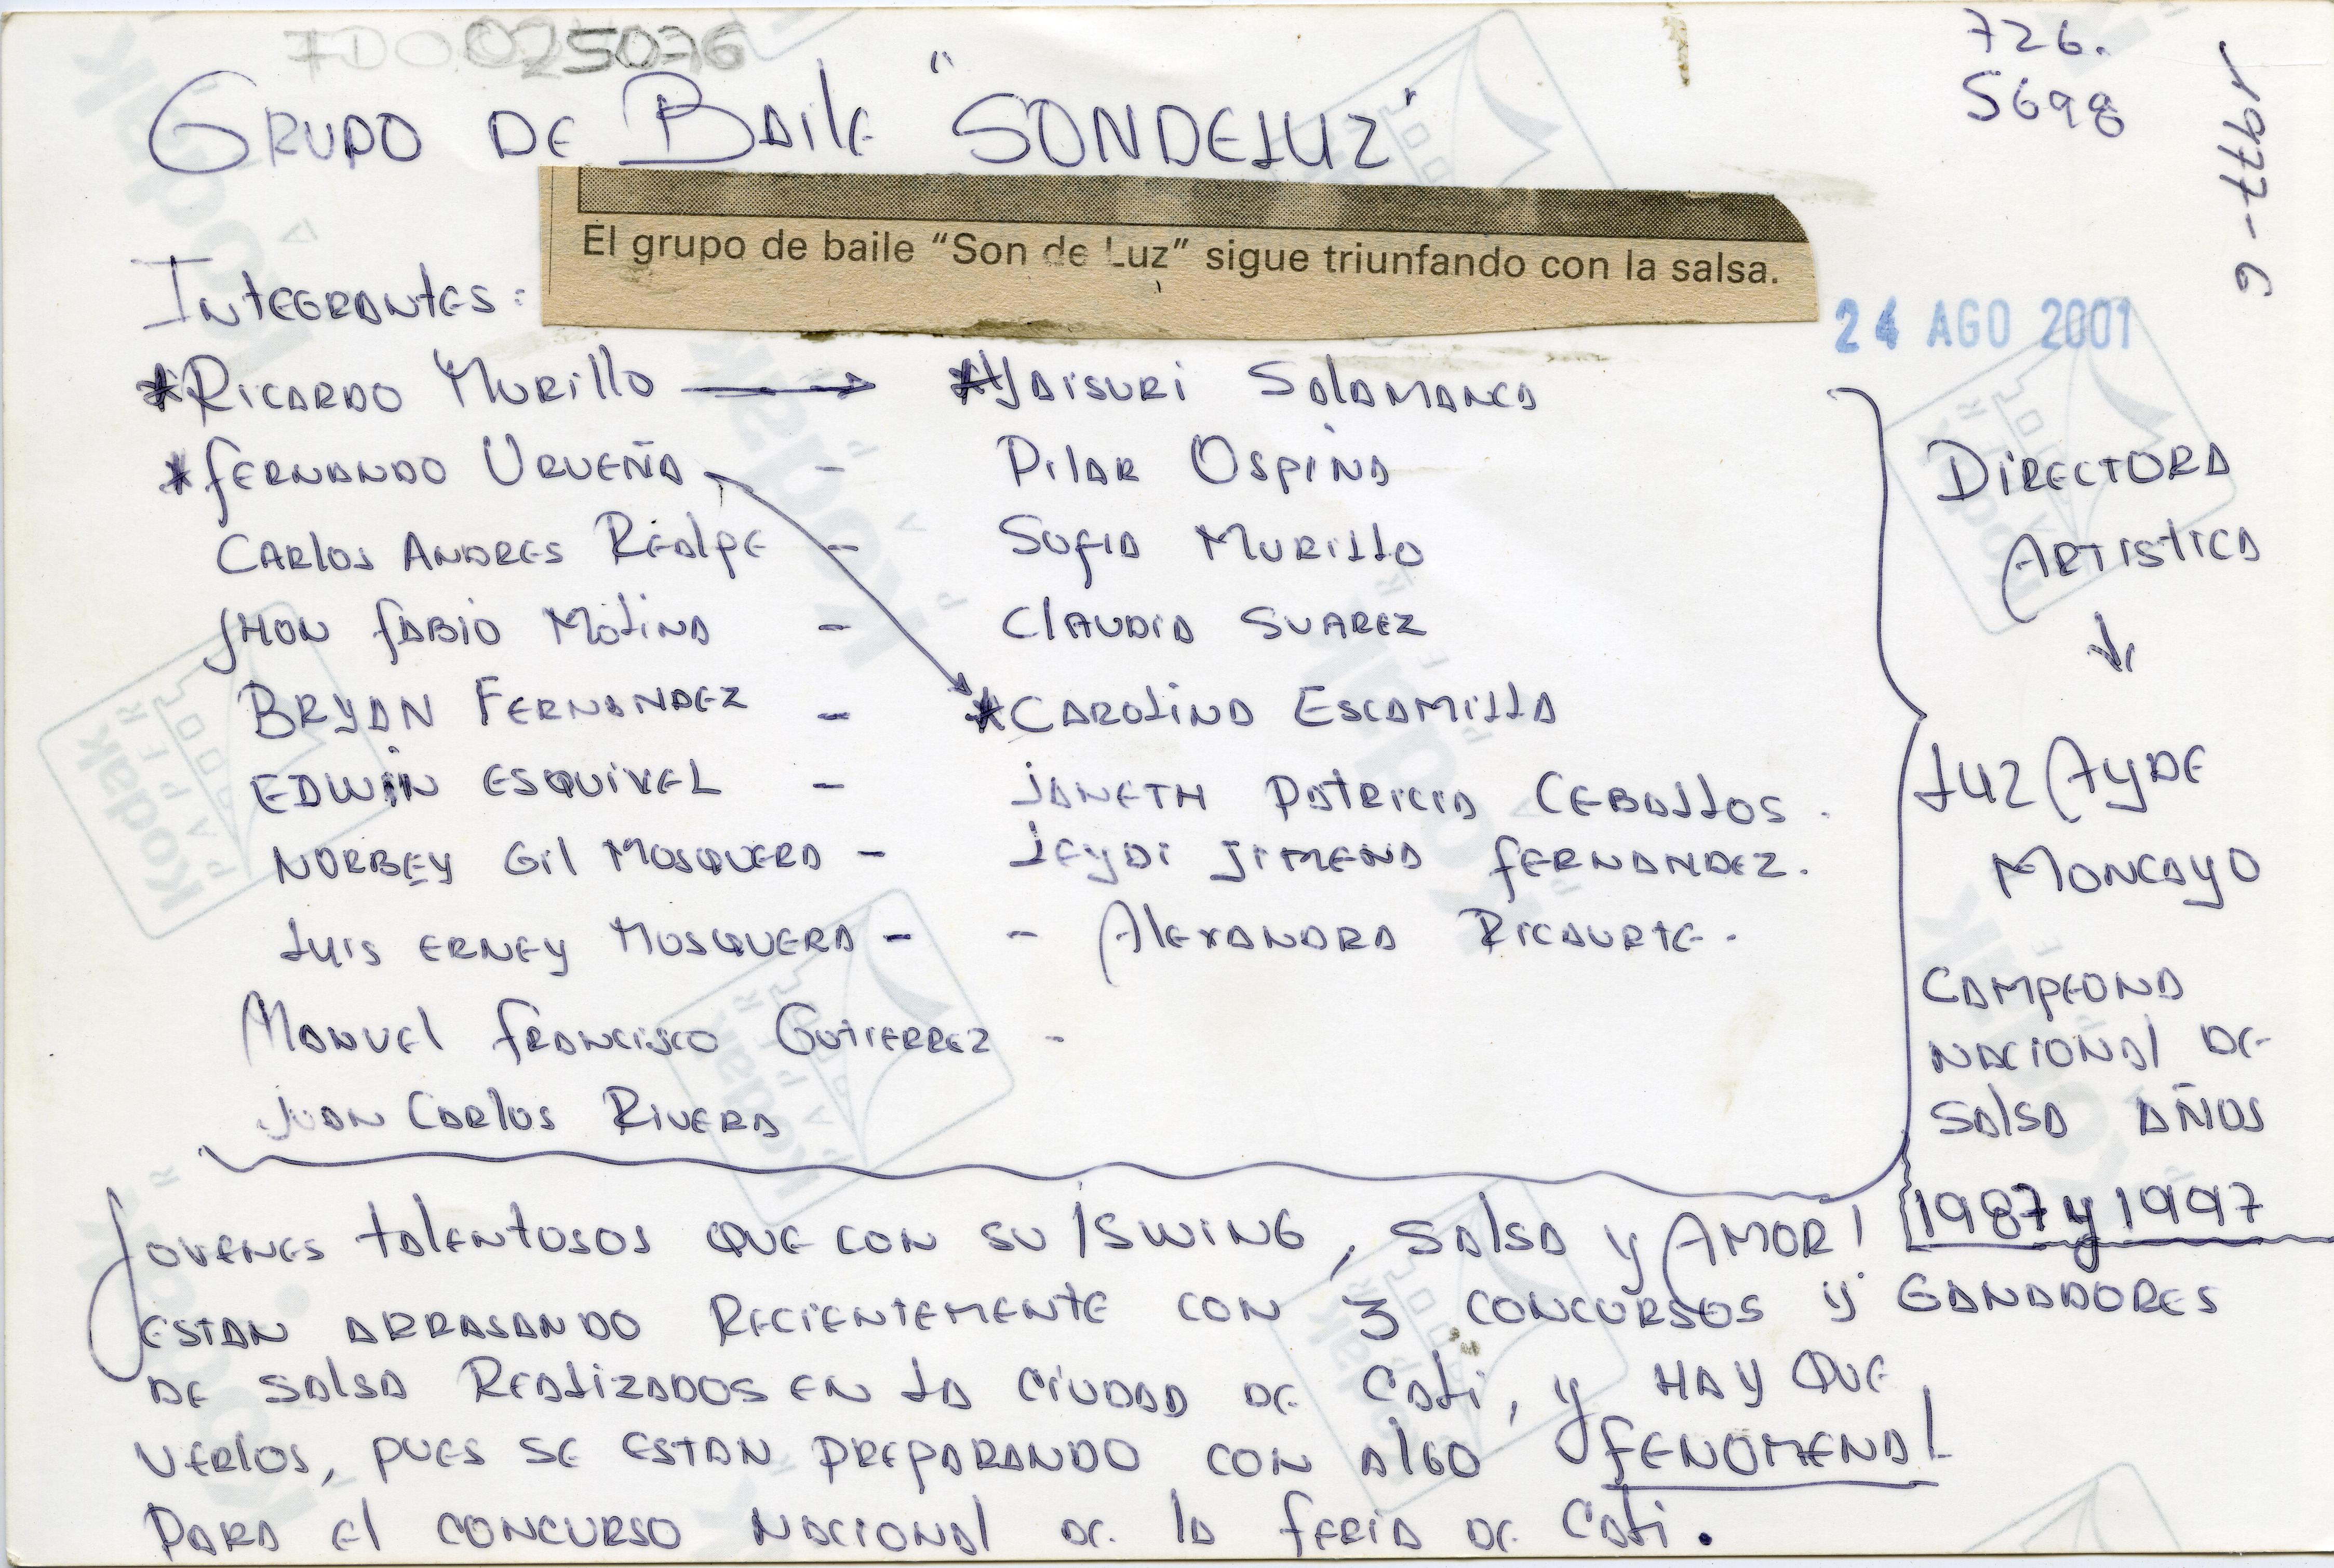 7D0025076
726.
5698
1977-6
GRUPO DE BAILE "SONDELUZ"
El grupo de baile "Son de Luz" sigue triunfando con la salsa.
INTEGRANTES:
24 AGO 2001
*RICARDO MURILLO → *YAISURI SALAMANCA
*FERNANDO URUEÑA - PILAR OSPINA
CARLOS ANDRES REALPE - SOFIA MURILLO
JHON FABIO MOLINA - CLAUDIA SUAREZ
BRYAN FERNANDEZ - *CAROLINA ESCAMILLA
EDWIN ESQUIVEL - JANETH PATRICIA CEBALLOS.
NORBEY GIL MOSQUERA - LEYDI JIMENA FERNANDEZ.
LUIS ERNEY MOSQUERA - - ALEXANDRA RICAURTE.
MANUEL FRANCISCO GUTIERREZ -
JUAN CARLOS RIVERA
DIRECTORA
ARTISTICA
↓
LUZ AYDE
MONCAYO
CAMPEONA
NACIONAL DE
SALSA AÑOS
1987 y 1997
JOVENES TALENTOSOS QUE CON SU ¡SWING, SALSA Y AMOR!
ESTAN ARRASANDO RECIENTEMENTE CON 3 CONCURSOS Y GANADORES
DE SALSA REALIZADOS EN LA CIUDAD DE CALI, Y HAY QUE
VERLOS, PUES SE ESTAN PREPARANDO CON ALGO FENOMENAL
PARA EL CONCURSO NACIONAL DE LA FERIA DE CALI.
Kodak
PAPER